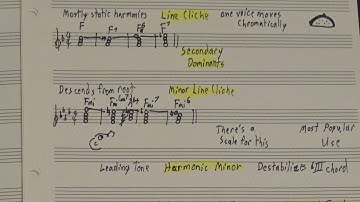 Mostly static harmonies Line Cliche one voice moves
Chromatically
F F+ F6 F7
Secondary
Dominants
Descends from root Minor Line Cliche
Fmi Fmi7 Fmi6
There's a Most Popular
Scale for this Use
Leading Tone Harmonic Minor Destabilizes bIII chord